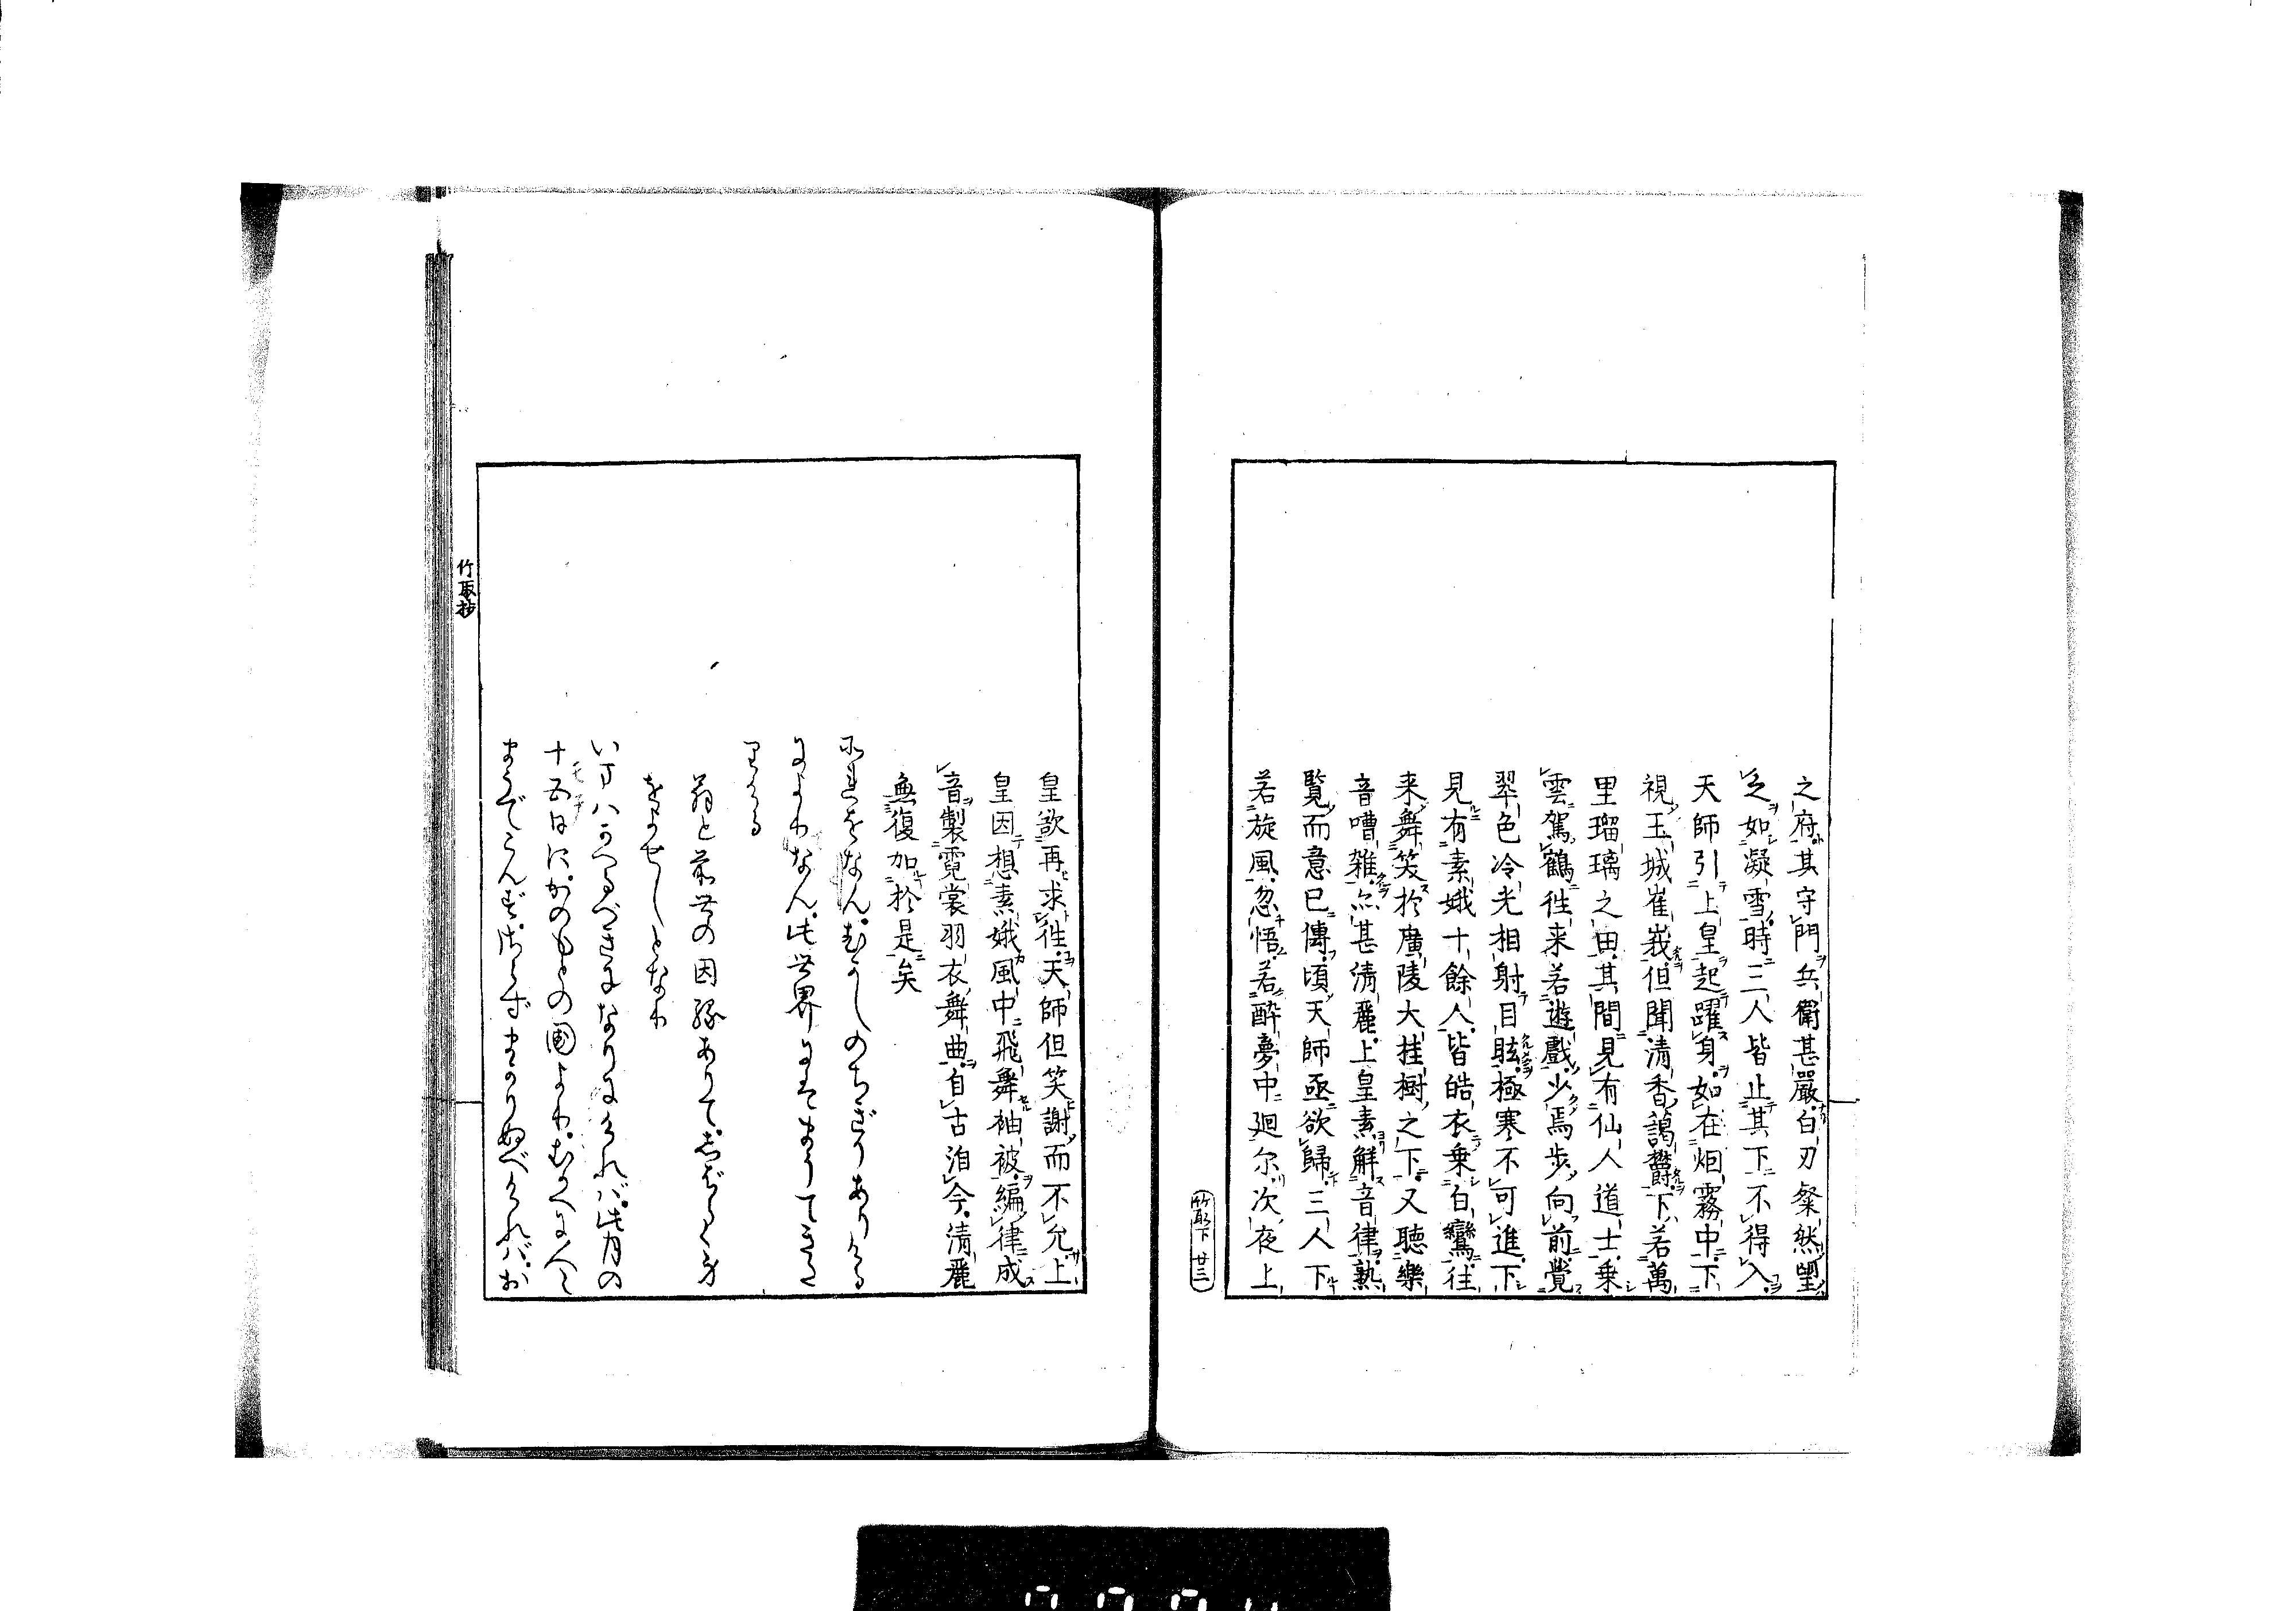 之府其守門兵衛甚嚴白刃粲然望
之如凝雪時三人皆止其下不得入
天師引上皇起躍身如在烟霧中下
視玉城崔峩但聞清香藹欝下若萬
里瑠璃之田其間見有仙人道士乗
雲駕鶴徃来若遊戯少焉歩向前覺
翠色冷光相射目眩極寒不可進下
見有素娥十餘人皆皓衣乗白鸞徃
来舞笑於廣陵大桂樹之下又聽樂
音嘈雑亦甚清麗上皇素解音律熟
覧而意已傳頃天師亟欲歸三人下
若旋風忽悟若醉夢中廻尓次夜上
竹取下 廿三
皇欲再求徃天師但笑謝而不允上
皇因想素娥風中飛舞袖被編律成
音製霓裳羽衣舞曲自古洎今清麗
無復加於是矣
それをなん。むかしのちぎりありける
によりなん。此世界にはまうてきた
りける
翁と前世の因縁ありて。しばらく身
をよせしとなり
いまハかへるべきになりにければ。此月の
十五日に。かのもとの國より。むかへに人〻
まうでこんず。さらずまかりぬべければ。お
竹取抄